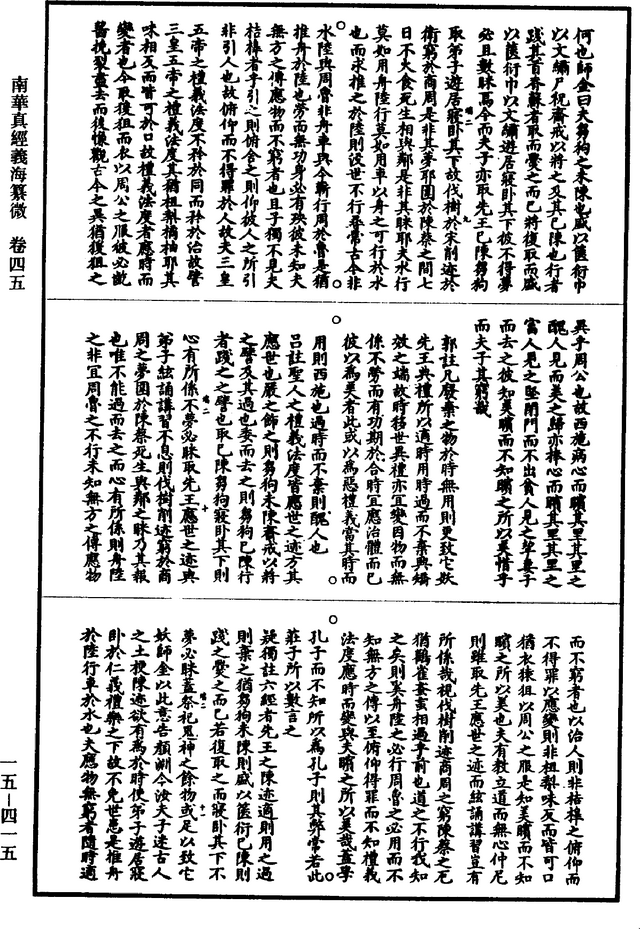 南華真經義海纂微 卷四五
一五-四一五
何也師金曰夫芻狗之未陳也盛以篋衍巾
以文繡尸祝齋戒以將之及其已陳也行者
踐其首脊蘇者取而爨之而已將復取而盛
以篋衍巾以文繡遊居寢卧其下彼不得夢
必且數眯焉今而夫子亦取先王已陳芻狗
取弟子遊居寢卧其下故伐樹於宋削迹於
衛窮於商周是非其夢耶圍於陳蔡之間七
日不火食死生相與鄰是非其眯耶夫水行
莫如用舟陸行莫如用車以舟之可行於水
也而求推之於陸則沒世不行尋常古今非
水陸與周魯非舟車與今蘄行周於魯是猶
推舟於陸也勞而無功身必有殃彼未知夫
無方之傳應物而不窮者也且子獨不見夫
桔槔者乎引之則俯舍之則仰彼人之所引
非引人也故俯仰而不得罪於人故夫三皇
五帝之禮義法度不矜於同而矜於治故譬
三皇五帝之禮義法度其猶柤梨橘柚耶其
味相反而皆可於口故禮義法度者應時而
變者也今取猨狙而衣以周公之服彼必齕
齧挽裂盡去而後慊觀古今之異猶猨狙之
異乎周公也故西施病心而矉其里其里之
醜人見而美之歸亦捧心而矉其里其里之
富人見之堅閉門而不出貧人見之挈妻子
而去之彼知美矉而不知矉之所以美惜乎
而夫子其窮哉
郭註凡廢棄之物於時無用則更致它妖
先王典禮所以適時用時過而不棄興矯
效之端故時移世異禮亦宜變因物而無
係不勞而有功期於合時宜應治體而已
彼以為美者此或以為惡禮義當其時而
用則西施也過時而不棄則醜人也
呂註聖人之禮義法度皆應世之迹方其
應世也嚴之飾之則芻狗未陳齋戒以將
之譬及其過也委而去之則芻狗已陳行
者踐之之譬也取已陳芻狗寢卧其下則
心有所係不夢必眯取先王應世之迹與
弟子絃誦講習不息則伐樹削迹窮於商
周之夢圍於陳蔡死生與鄰之眯乃其報
也唯不能過而去之而心有所係則舟陸
之非宜周魯之不行未知無方之傳應物
而不窮者也以治人則非桔槔之俯仰而
不得罪以應變則非柤梨味反而皆可口
猶衣猨狙以周公之服是知美矉而不知
矉之所以美也夫有教立道而無心仲尼
則雖取先王應世之迹而絃誦講習豈有
所係哉視伐樹削迹商周之窮陳蔡之厄
猶鸛雀蚊虻相過乎前也道之不行我知
之矣則奚舟陸之必行周魯之必用而不
知無方之傳以至俯仰得罪而不知禮義
法度應時而變與夫矉之所以美哉蓋學
孔子而不知所以為孔子則其弊常若此
莊子所以數言之
疑獨註六經者先王之陳迹適則用之過
則棄之猶芻狗未陳則盛以篋衍已陳則
踐之爨之而已若復取之而寢卧其下不
夢必眯蓋祭祀鬼神之餘物或足以致它
妖師金以此意告顏淵今汝夫子述古人
之土梗陳迹欲有為於時使弟子遊居寢
卧於仁義禮樂之下故不免世患是推舟
於陸行車於水也夫應物無窮者隨時適